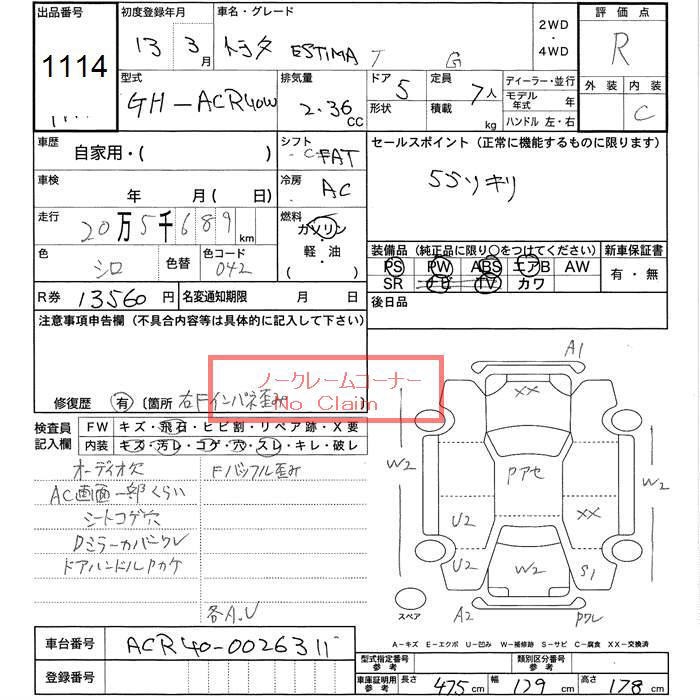 出品番号 初度登録年月 車名・グレード 評価点
1114
13 3月 トヨタ ESTIMA T G
2WD・4WD
R
型式 排気量 ドア 5 定員 7人 ディーラー・並行
GH-ACR40W 2.36 CC
形状 積載 kg
モデル年式 年
ハンドル 左・右
外装 内装
C
車歴 自家用・( )
シフト CFAT
セールスポイント (正常に機能するものに限ります)
車検 年 月 ( 日)
冷房 AC
走行 20万5千689km
燃料 ガソリン・軽・油
色 シロ 色替 色コード 042
装備品 (純正品に限り〇をつけてください) 新車保証書
PS PW ABS エアB AW
SR ナビ TV カワ
有・無
R券 13560円 名変通知期限 月 日
後日品
注意事項申告欄 (不具合内容等は具体的に記入して下さい)
ノークレームコーナー
No Claim
修復歴 有 〔箇所 右Fインパネ歪み 〕
検査員記入欄
FW キズ・飛石・ヒビ割・リペア跡・X要
内装 キズ・汚レ・コゲ・穴・スレ・キレ・破レ
オーディオ欠 Fバッフル歪み
AC画面一部くらい
シートコゲ穴
Dミラーカバーワレ
ドアハンドルカケ
各A.U
A1
XX
W2 Pアセ W2
U2 XX
U2 W2 S1
スペア A2 Pワレ
A-キズ E-エクボ U-凹み W-補修跡 S-サビ C-腐食 XX-交換済
車台番号 ACR40-0026311
型式指定番号 参考 類別区分番号 参考
登録番号
車庫証明用 参考 長さ 475cm 幅 179cm 高さ 178cm